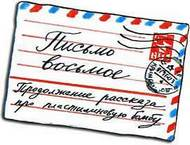 Письмо
восьмое
Продолжение рассказа
про пластилиновую бомбу